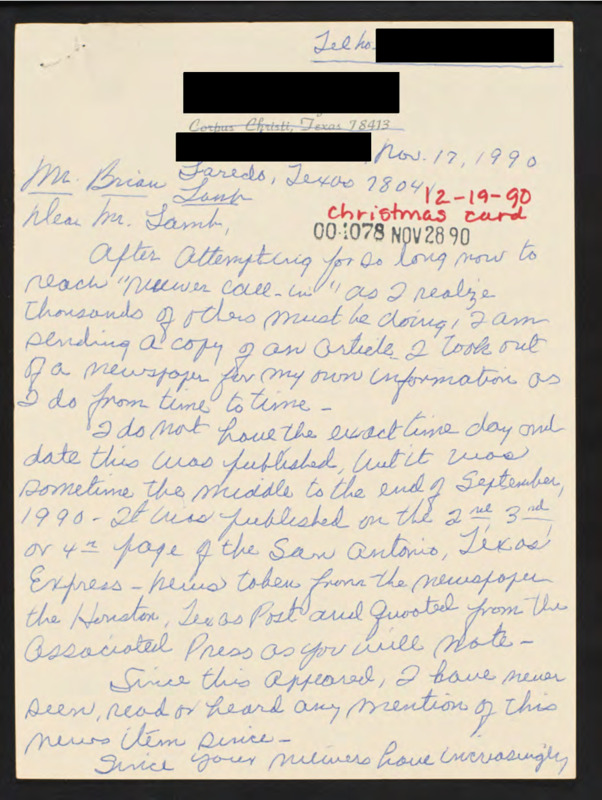 Tel no.
Corpus Christi, Texas 78413
Nov. 17, 1990
Mr. Brian Lamb
Laredo, Texas 7804
12-19-90
christmas card
Dear Mr. Lamb,
00-1078 NOV 28 90
After attempting for so long now to
reach "viewer call-in" as I realize
thousands of others must be doing, I am
sending a copy of an article I took out
of a newspaper for my own information as
I do from time to time -
I do not have the exact time day and
date this was published, but it was
sometime the middle to the end of September,
1990 - It was published on the 2nd, 3rd,
or 4th page of the San Antonio, Texas
Express - News taken from the newspaper
the Houston, Texas Post and quoted from the
Associated Press as you will note -
Since this appeared, I have never
seen, read or heard any mention of this
news item since -
Since your viewers have increasingly